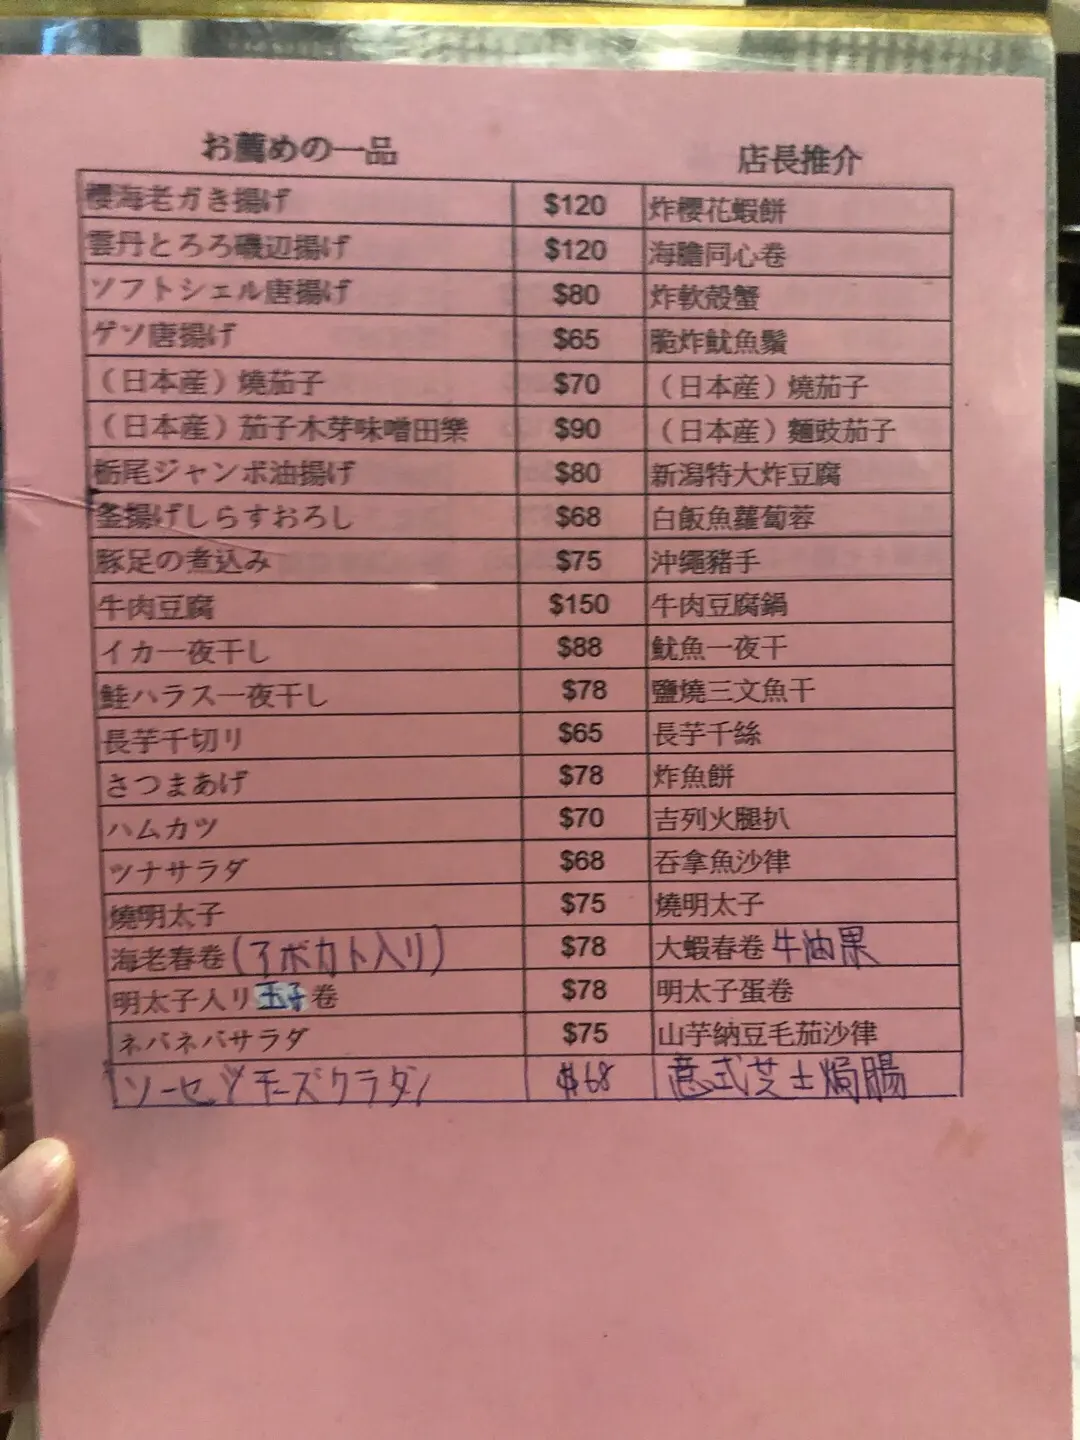 お薦めの一品 店長推介
櫻海老かき揚げ $120 炸櫻花蝦餅
雲丹とろろ磯辺揚げ $120 海膽同心卷
ソフトシェル唐揚げ $80 炸軟殼蟹
ゲソ唐揚げ $65 脆炸魷魚鬚
（日本産）燒茄子 $70 （日本産）燒茄子
（日本産）茄子木芽味噌田樂 $90 （日本産）麵豉茄子
栃尾ジャンボ油揚げ $80 新潟特大炸豆腐
釜揚げしらすおろし $68 白飯魚蘿蔔蓉
豚足の煮込み $75 沖繩豬手
牛肉豆腐 $150 牛肉豆腐鍋
イカ一夜干し $88 魷魚一夜干
鮭ハラス一夜干し $78 鹽燒三文魚干
長芋千切り $65 長芋千絲
さつまあげ $78 炸魚餅
ハムカツ $70 吉列火腿扒
ツナサラダ $68 吞拿魚沙律
燒明太子 $75 燒明太子
海老春卷(アボカト入り) $78 大蝦春卷 牛油果
明太子入り玉子卷 $78 明太子蛋卷
ネバネバサラダ $75 山芋納豆毛茄沙律
ソーセツチーズクラダン $68 意式芝士焗腸